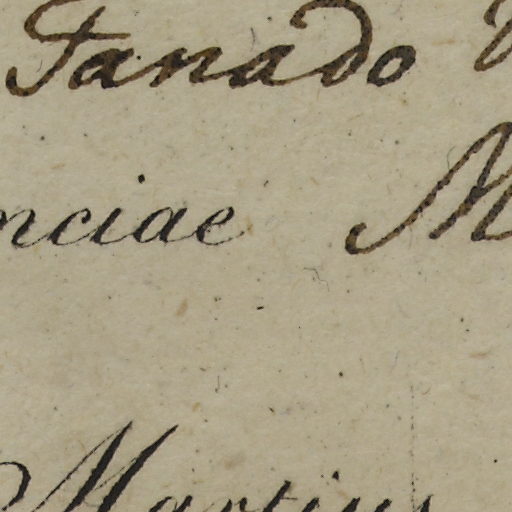 Tanado
nciae M
Martius